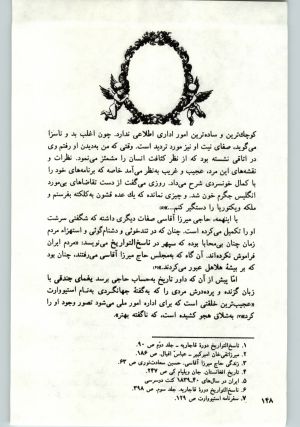 کوچک‌ترین و ساده‌ترین امور اداری اطلاعی ندارد. چون اغلب بد و ناسزا
می‌گوید، صفای نیت او نیز مورد تردید است. وقتی که من به‌دیدن او رفتم وی
در اتاقی نشسته بود که از نظر کثافت انسان را مشمئز می‌نمود. نظرات و
نقشه‌های این مرد، عجیب و غریب به‌نظر می‌آمد خاصه که برنامه‌های خود را
با کمال خونسردی شرح می‌داد. روزی می‌گفت از دست تقاضاهای بی‌مورد
انگلیس جگرم خون شد. و چیزی نمانده که یک عده قشون به‌کلکته بفرستم و
ملکه ویکتوریا را دستگیر کنم...»
با اینهمه، حاجی میرزا آقاسی صفات دیگری داشته که شگفتی سرشت
او را تکمیل می‌کرده است. چنان که در تندخوئی و دشنام‌گوئی و استهزاء مردم
زمان چنان بی‌محابا بوده که سپهر در ناسخ‌التواریخ می‌نویسد: «مردم ایران
فراموش نکرده‌اند. آن گاه که به‌مجلس حاج میرزا آقاسی می‌رفتند، چنان بود
که بر بیشهٔ هلاهل عبور می‌کردند.»
اما پیش از آن که داور تاریخ به‌حساب حاجی برسد یغمای جندقی با
زبان گزنده و پرده‌درش مردی را که به‌گفتهٔ جهانگردی به‌نام استیووارت
«عجیب‌ترین خلقتی است که برای اداره امور ملی می‌شود تصور وجود او را
کرد» به‌شلاق هجو کشیده است، که ناگفته بهتر».
۱. ناسخ‌التواریخ دورهٔ قاجاریه - جلد دوم ص ۹۰.
۲. میرزاتقی‌خان امیرکبیر - عباس اقبال، ص ۱۸۶.
۳. زندگی حاج میرزا آقاسی، حسین سعادت‌نوری ص ۶۳.
۴. تاریخ افغانستان، جان ویلیام کی ص ۲۴۷.
۵. ایران در سال‌های ۴۰ـ۱۸۳۹ کنت دوسرسی
۶. ناسخ‌التواریخ دورهٔ قاجاریه. جلد سوم، ص ۳۹۸.
۷. سفرنامه استیووارت ص ۱۲۹.
۱۴۸